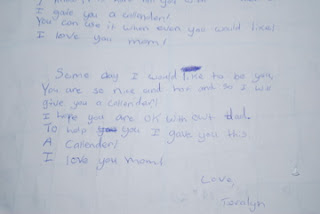 I gave you a calender!
You can use it when ever you would like!
I love you mom!
Some day I would like to be you,
You are so nice and and so I
give you a calender!
I hope you are OK with out dad.
To help you I gave you this.
A Calender!
I love you mom!
Love,
Jeralyn